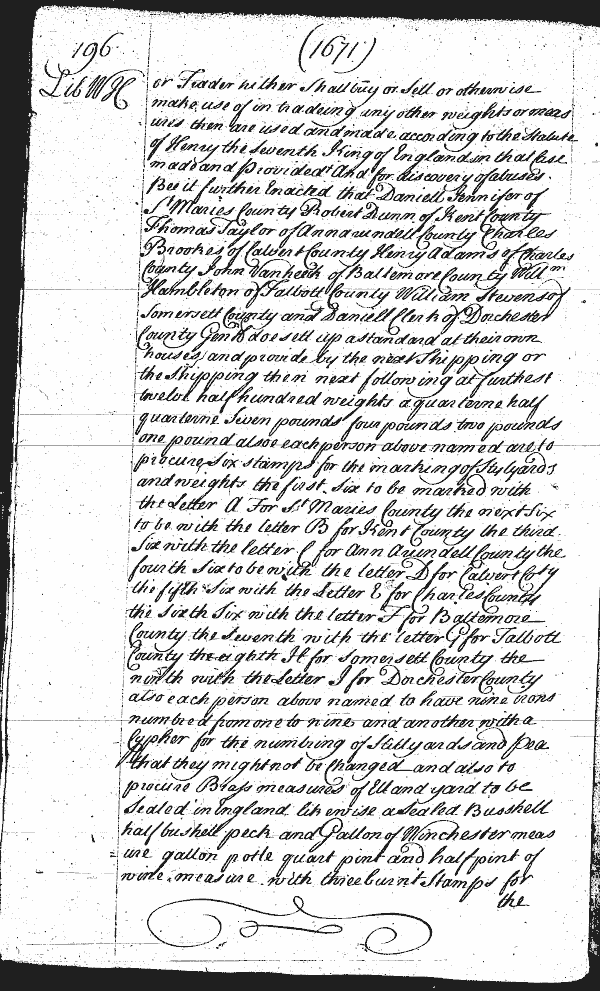 196
(1671)
Lib W H
or Trader nither Shall buy or Sell or otherwise
make use of in tradeing any other weights or meas
ures then are used and made according to the Statute
of Henry the Seventh King of England in that Case
made and Provided And for discovery of abuses.
Bee it further Enacted that Daniell Jennifer of
St Maries County Robert Dunn of Kent County
Thomas Taylor of Annarundell County Charles
Brookes of Calvert County Henry Adams of Charles
County John Vanheck of Baltemore County Willm
Hambleton of Talbott County William Stevens of
Somersett County and Daniell Clerk of Dorchester
County Gent doe sett up a standard at their own
houses and provide by the next Shipping or
the Shipping then next following at furthest
twelve half hundred weights a quarterne half
quarterne Seven pounds four pounds two pounds
one pound alsoe each person above named are to
procure Six stamps for the marking of Stylyards
and weights the first Six to be marked with
the Letter A For St Maries County the next Six
to be with the letter B for Kent County the third
Six with the letter C for Ann Arundell County the
fourth Six to be with the letter D for Calvert Coty
the fifth Six with the Letter E for Charles County
the Sixth Six with the letter F for Baltemore
County the Seventh with the letter G for Talbott
County the eighth H for Somersett County the
ninth with the Letter I for Dorchester County
also each person above named to have nine irons
numbred from one to nine and another with a
Cypher for the numbring of Stillyards and Pea
that they might not be Changed and also to
procure Brass measures of Ell and yard to be
Sealed in England likewise a Sealed Busshell
half bushell peck and Gallon of Winchester meas
ure gallon potle quart pint and half pint of
wine measure with three burnt Stamps for
the